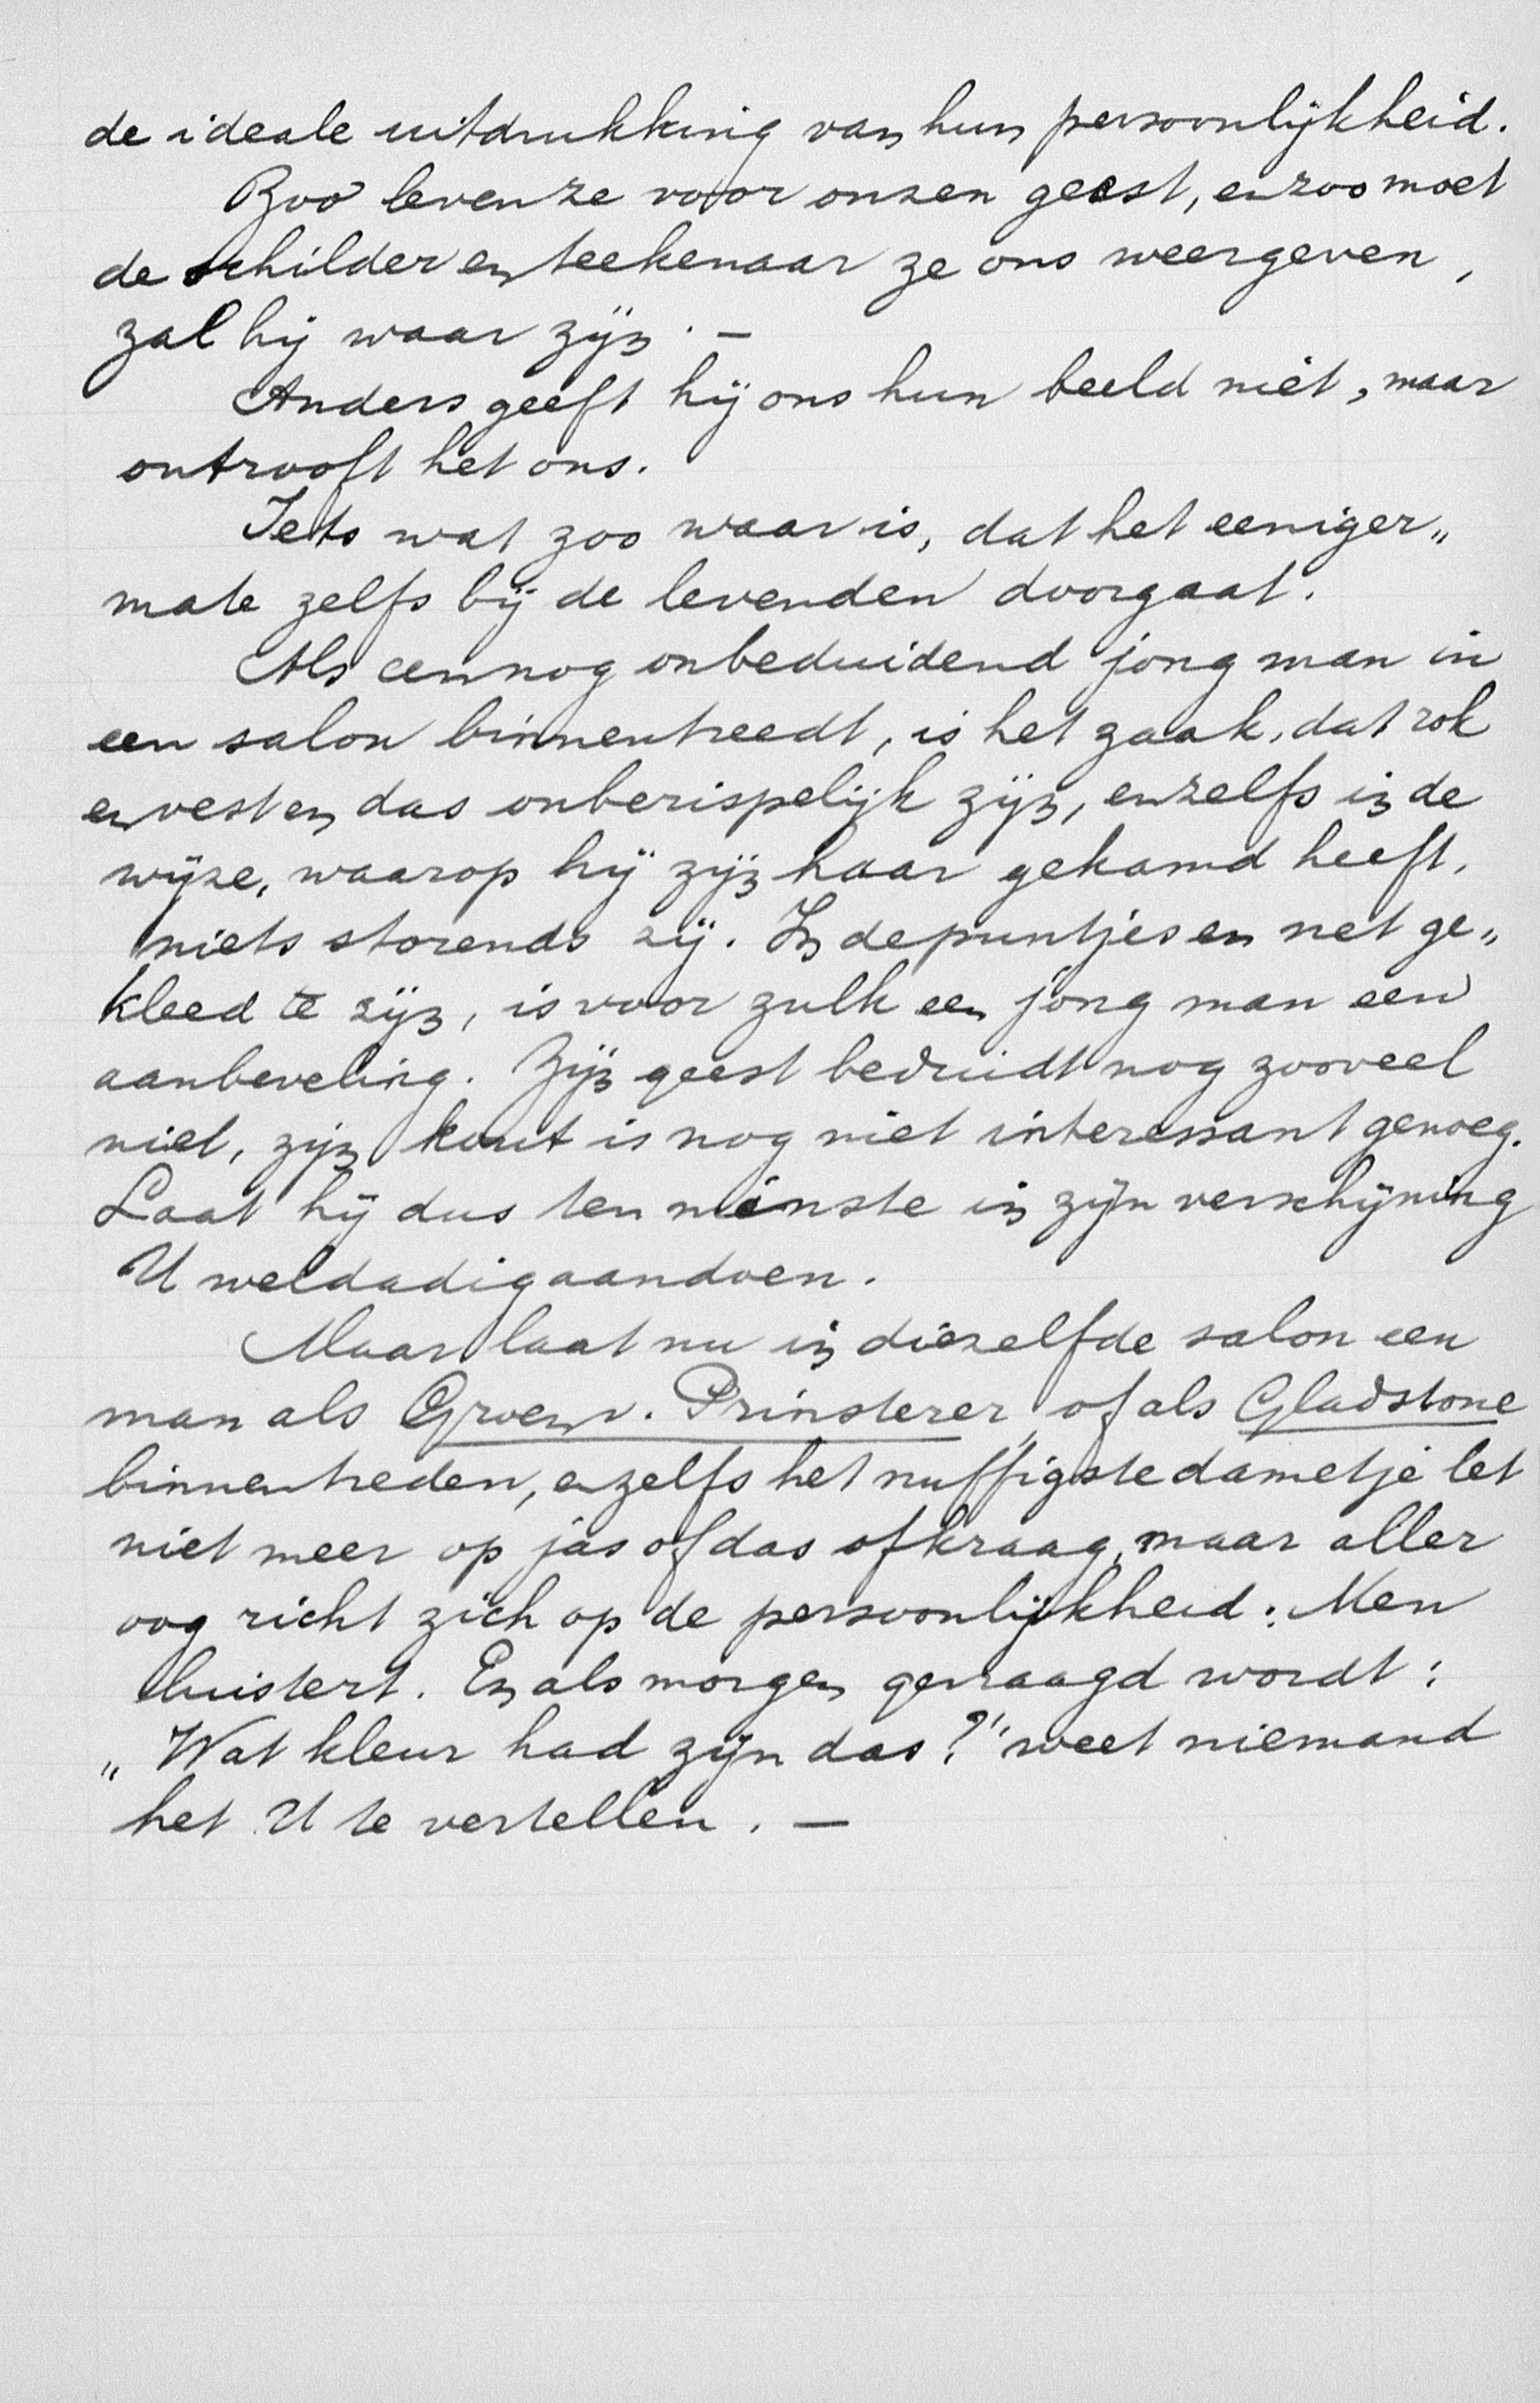 de ideale uitdrukking van hun persoonlijkheid.
Zoo leven ze voor onzen geest, en zoo moet
de schilder en teekenaar ze ons weergeven,
zal hij waar zijn. —
Anders geeft hij ons hun beeld niet, maar
ontrooft het ons.
Iets wat zoo waar is, dat het eeniger„
mate zelfs bij de levenden doorgaat.
Als een nog onbeduidend jong man in
een salon binnentreedt, is het zaak, dat rok
en vest en das onberispelijk zijn, en zelfs in de
wijze, waarop hij zijn haar gekamd heeft,
niets storends zij. In de puntjes en net ge„
kleed te zijn, is voor zulk een jong man een
aanbeveling. Zijn geest beduidt nog zooveel
niet, zijn kout is nog niet interessant genoeg.
Laat hij dus ten minste in zijn verschijning
U weldadig aandoen.
Maar laat nu in diezelfde salon een
man als Groen v. Prinsterer, of als Gladstone
binnentreden, en zelfs het nuffigste dametje let
niet meer op jas of das of kraag, maar aller
oog richt zich op de persoonlijkheid: Men
luistert. En als morgen gevraagd wordt:
„Wat kleur had zijn das?" weet niemand
het U te vertellen. —